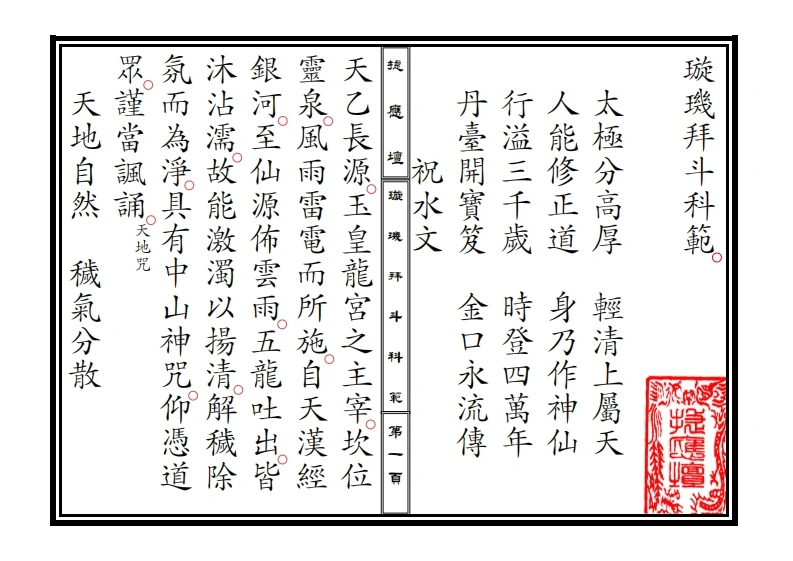 璇璣拜斗科範。
太極分高厚　輕清上屬天
人能修正道　身乃作神仙
行溢三千歲　時登四萬年
丹臺開寶笈　金口永流傳
祝水文
捷應壇
璇璣拜斗科範
第一頁
天乙長源。玉皇龍宮之王宰。坎位
靈泉。風雨雷電而所施。自天漢經
銀河。至仙源佈雲雨。五龍吐出。皆
沐沾濡。故能激濁以揚清。解穢除
氛而為淨。具有中山神咒。仰憑道
眾。謹當諷誦。天地咒
天地自然　穢氣分散